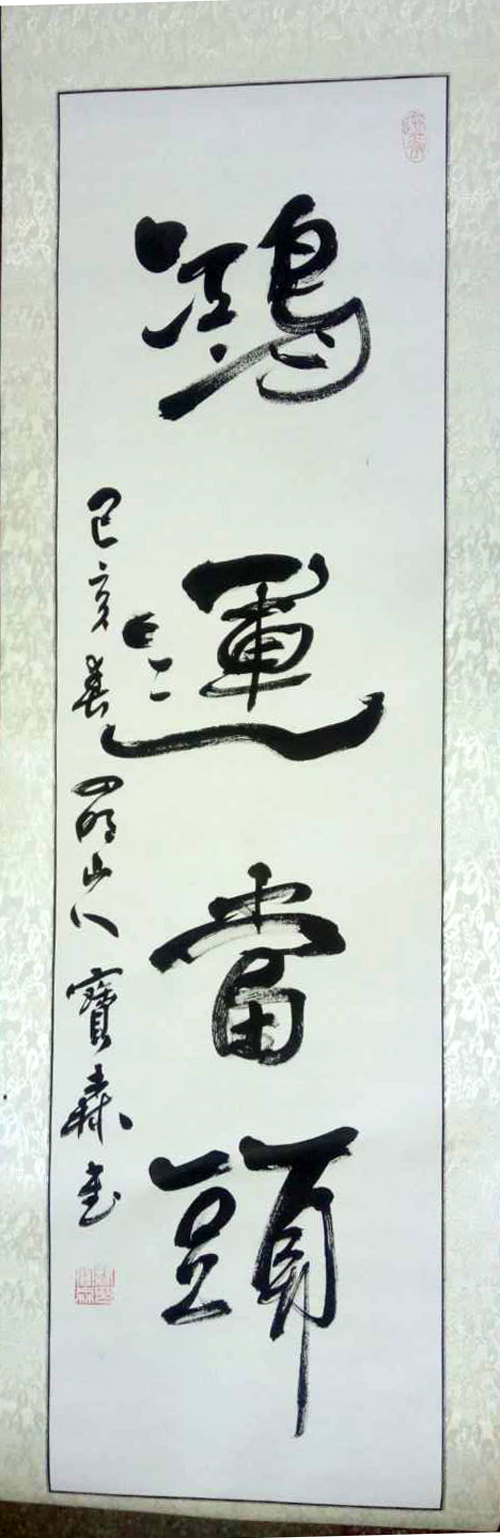 鴻運當頭
己亥春四明山人寶森書